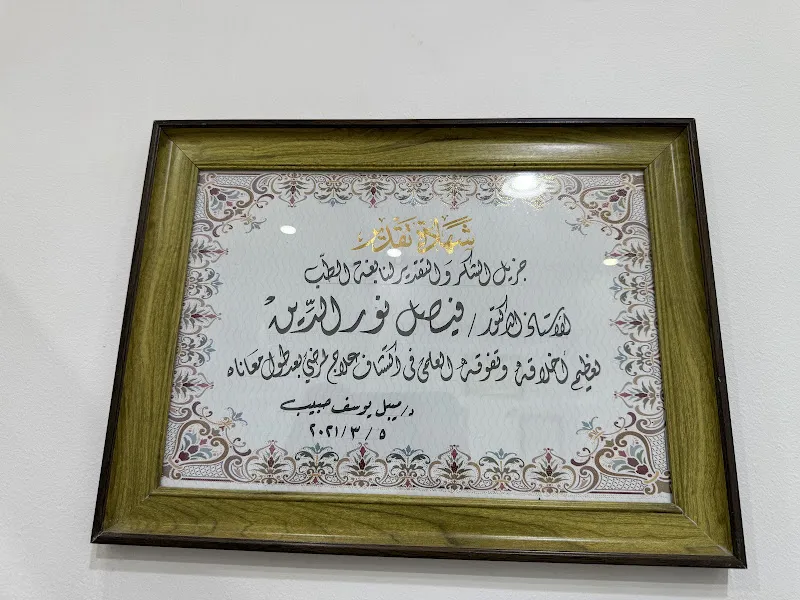 شهادة تقدير
جزيل الشكر والتقدير لنابغة الطب
الأستاذ الدكتور / فيصل نور الدين
لعظيم أخلاقه وتفوقه العلمى فى اكتشاف علاج مرضي بعد طول معاناه
د/ ميبل يوسف حبيب
٥ / ٣ / ٢٠٢١